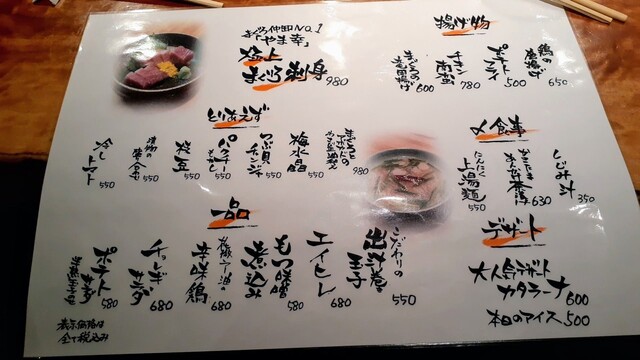 まぐろ仲卸No.1
「やま幸」
極上
まぐろ刺身 980
揚げ物
鶏の
唐揚げ
650
ポテト
フライ
500
チキン
南蛮
780
まぐろの
竜田揚げ
600
とりあえず
980
梅水晶
550
つぶ貝
チャンジャ
550
550
枝豆
550
漬物の
盛合わせ
550
冷し
トマト
550
〆食事
しじみ汁
350
630
にんにく
上湯麺
550
一品
こだわりの
出汁巻き
玉子
550
エイヒレ
680
もつ味噌
煮込み
580
極ラー油の
辛味鶏
680
チョレギ
サラダ
680
ポテト
サラダ
半熟玉子のせ
580
デザート
大人気デザート
カタラーナ 600
本日のアイス 500
表示価格は
全て税込み